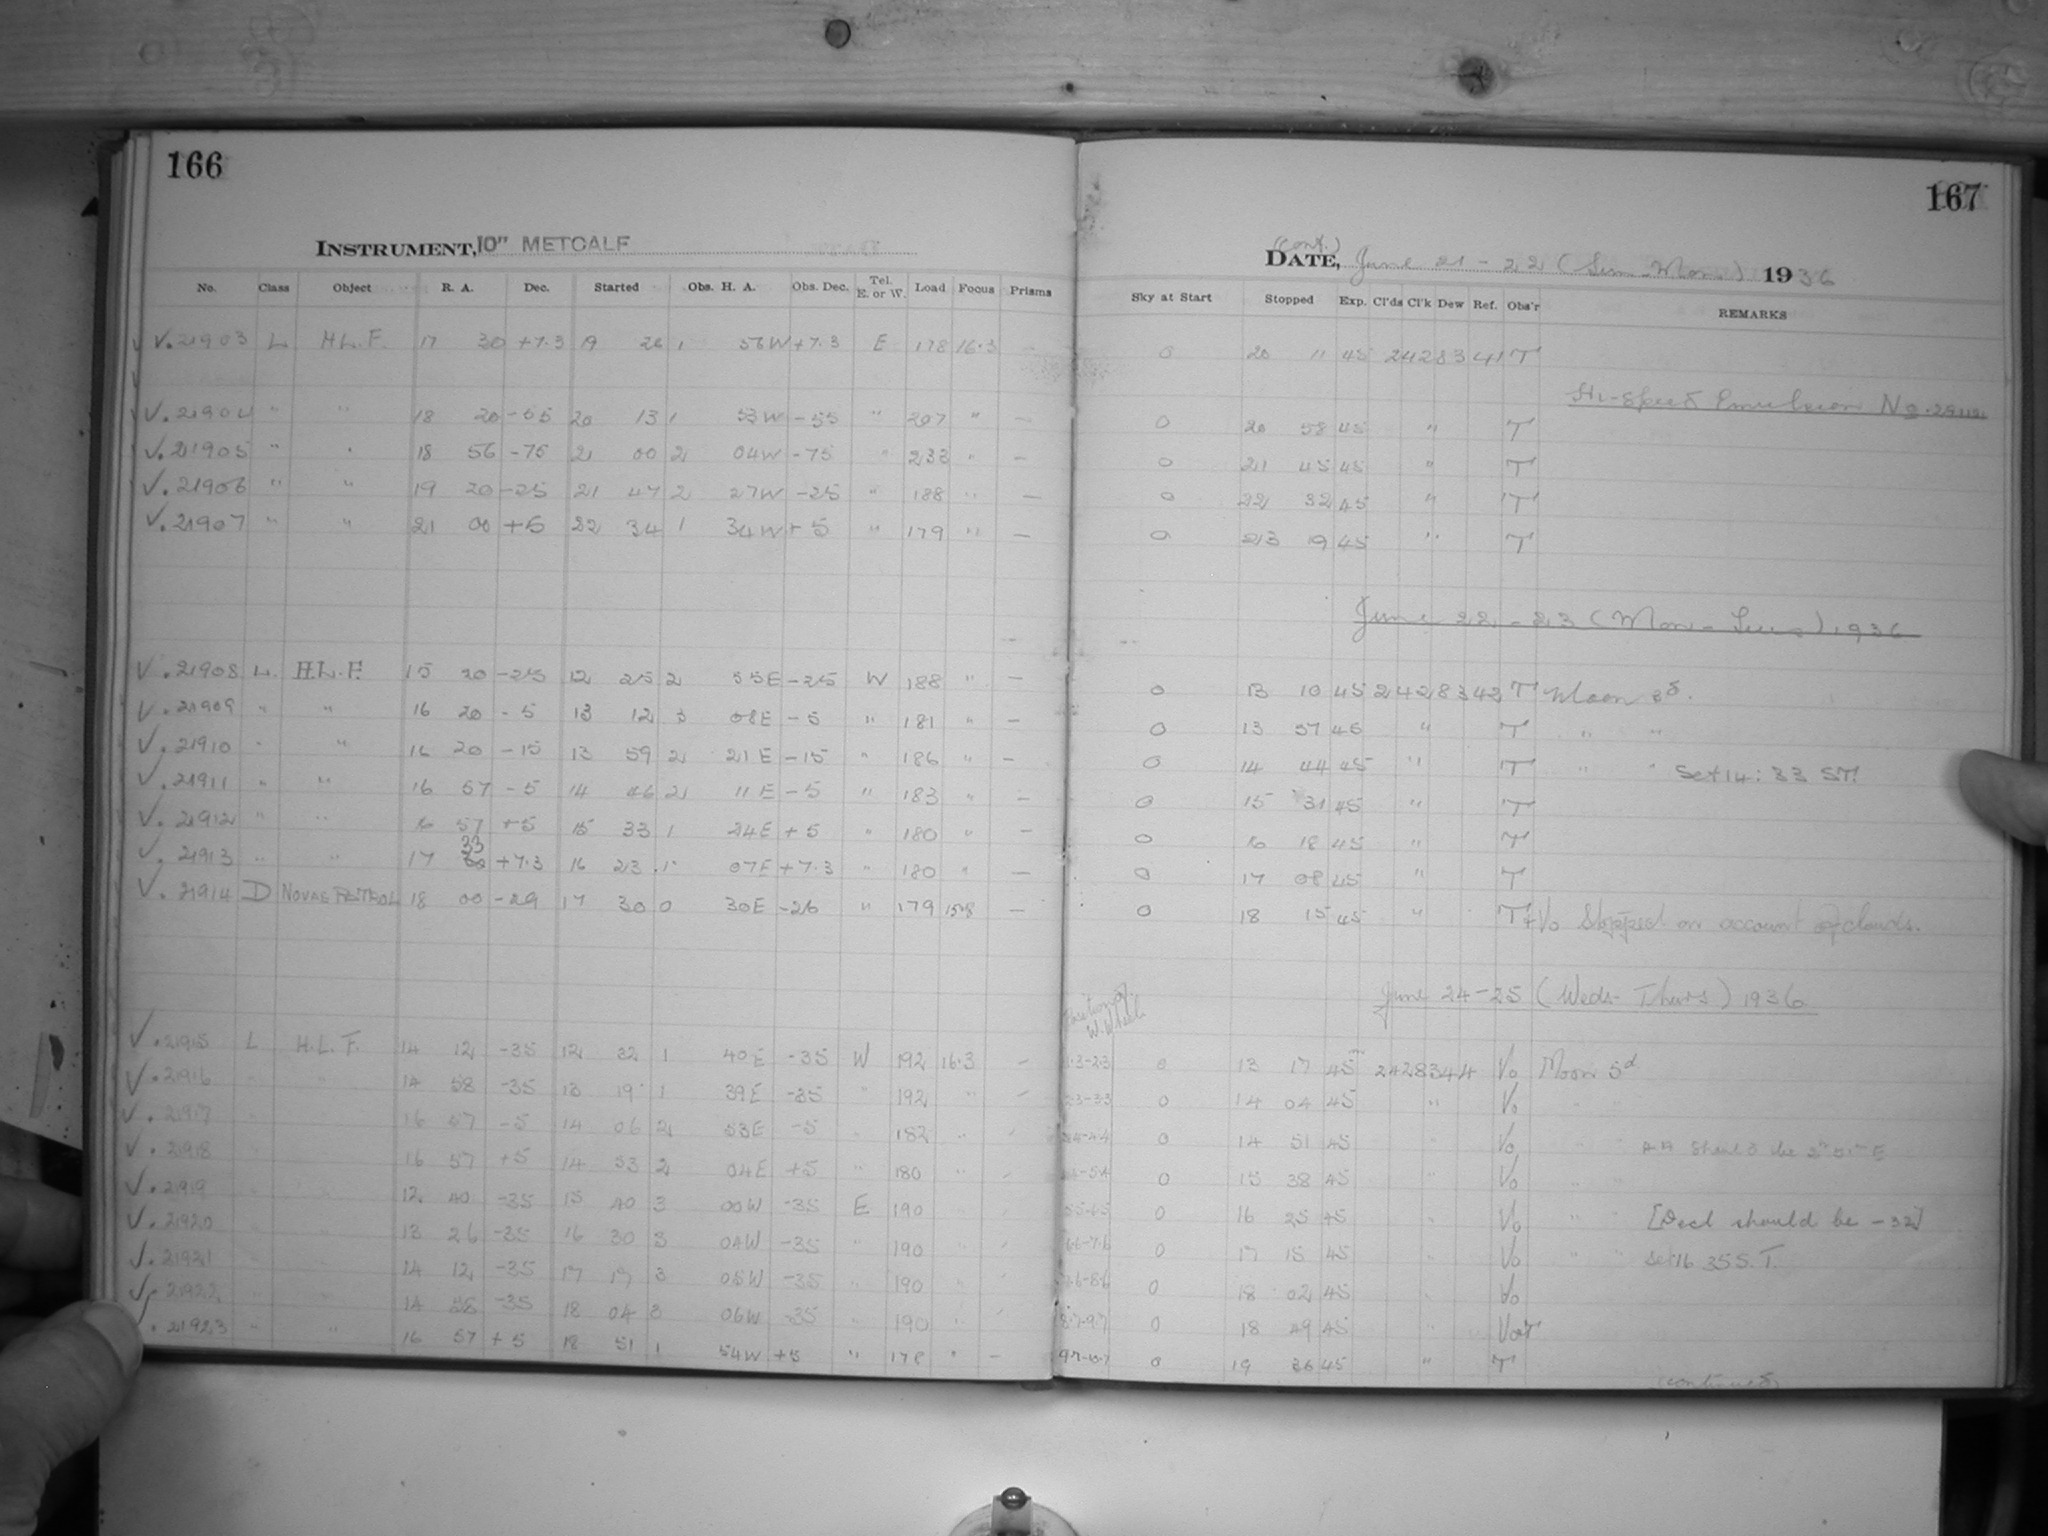 166
INSTRUMENT, 10" METCALF
No. Class Object R. A. Dec. Started Obs. H. A. Obs. Dec. Tel. E. or W. Load Focus Prisms
V.21903 L. H.L.F. 17 30 +7.3 19 26 1 56W +7.3 E 178 16.3 –
V.21904 " " 18 20 -55 20 13 1 53W -55 " 207 " –
V.21905 " " 18 56 -75 21 00 2 04W -75 " 233 " –
V.21906 " " 19 20 -25 21 47 2 27W -25 " 188 " –
V.21907 " " 21 00 +5 22 34 1 34W +5 " 179 " –
V.21908 L. H.L.F. 15 20 -25 12 25 2 55E -25 W 188 " –
V.21909 " " 16 20 -5 13 12 3 08E -5 " 181 " –
V.21910 " " 16 20 -15 13 59 2 21E -15 " 186 " –
V.21911 " " 16 57 -5 14 46 2 11E -5 " 183 " –
V.21912 " " 16 57 +5 15 33 1 24E +5 " 180 " –
V.21913 " " 17 33 +7.3 16 23 1 07E +7.3 " 180 " –
V.21914 D NOVAE PATROL 18 00 -29 17 30 0 30E -26 " 179 15.8 –
V.21915 L H.L.F. 14 12 -35 12 32 1 40E -35 W 192 16.3 –
V.21916 " 14 58 -35 13 19 1 39E -35 " 192 " –
V.21917 16 57 -5 14 06 2 53E -5 " 182 "
V.21918 16 57 +5 14 53 2 04E +5 " 180 "
V.21919 12 40 -35 15 40 3 00W -35 E 190
V.21920 13 26 -35 16 30 3 04W -35 " 190 "
V.21921 14 12 -35 17 17 3 05W -35 " 190 "
V.21922 " " 14 58 -35 18 04 3 06W -35 " 190 "
V.21923 " " 16 57 +5 18 51 1 54W +5 " 178 " –
167
(cont.)
DATE, June 21-22 (Sun-Mon) 1936
Sky at Start Stopped Exp. Cl'ds Cl'k Dew Ref. Obs'r REMARKS
0 20 11 45 2428341 T
Hi-speed Emulsion No.
0 20 58 45 " T
0 21 45 45 " T
0 22 32 45 " T
0 23 19 45 " T
June 22-23 (Mon-Tues) 1936
0 13 10 45 2428342 T Moon 3d.
0 13 57 45 " T " "
0 14 44 45 " T " " Set 14:33 ST.
0 15 31 45 " T
0 16 18 45 " T
0 17 08 45 " T
0 18 15 45 " T+Vo Stopped on account of clouds.
June 24-25 (Weds-Thurs) 1936
Position of
1.3-2.3 0 13 17 45 2428344 Vo Moon 5d
2.3-3.3 0 14 04 45 " Vo
0 14 51 45 Vo HA should be
0 15 38 45 Vo
0 16 25 45 Vo " " [Decl should be -32]
6.6-7.6 0 17 15 45 Vo " " Set 16 35 S.T.
7.6-8.6 0 18 02 45 Vo
8.7-9.7 0 18 49 45 Vo+T
9.7-10.7 0 19 36 45 " T
(continued)